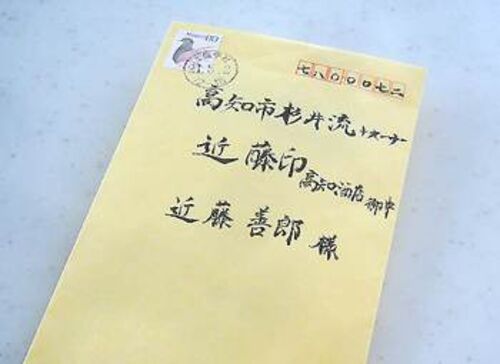 七八〇〇〇七二
高知市杉井流
近藤印
高知酒店 御中
近藤善郎様